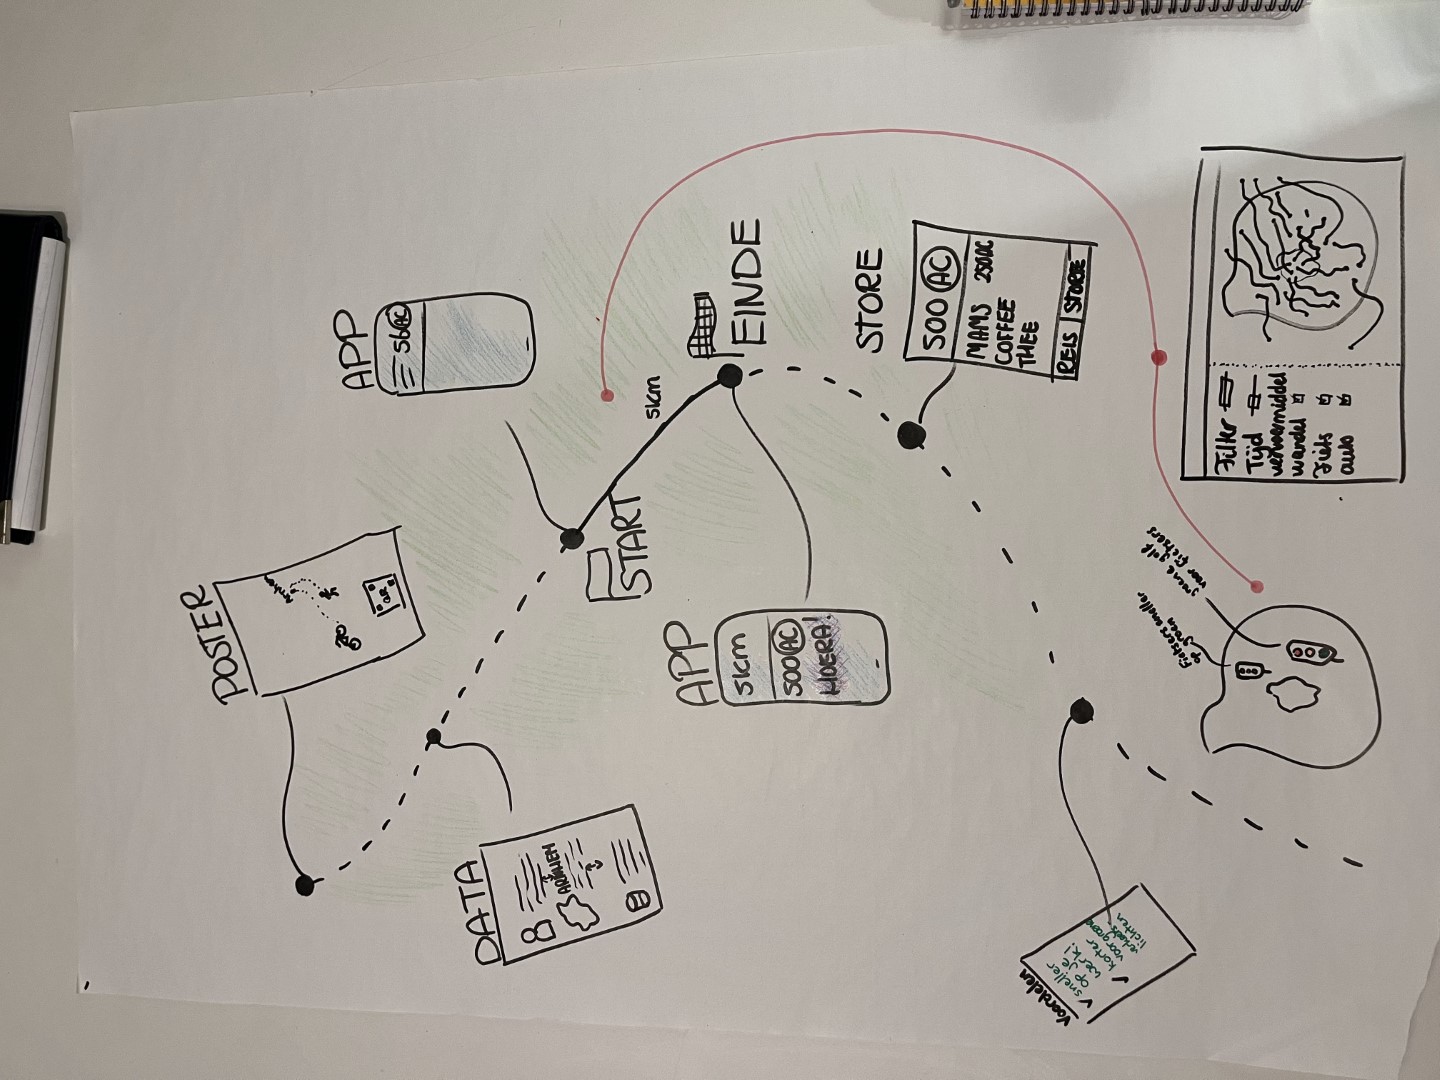 POSTER
Arnhem
QR
APP
56 AC
DATA
ARNHEM
START
5km
APP
5km
500 AC
HOERA!
EINDE
STORE
500 AC
MAMS 250AC
COFFEE
THEE
REIS STORE
Voordelen
✓ sneller
op je
werk!
✓ korter
voor groene
verkeers-
lichten
Fietsers sneller
op groen
groene golf
voor fietsers
Filter
Tijd
vervoermiddel
wandel
Fiets
auto